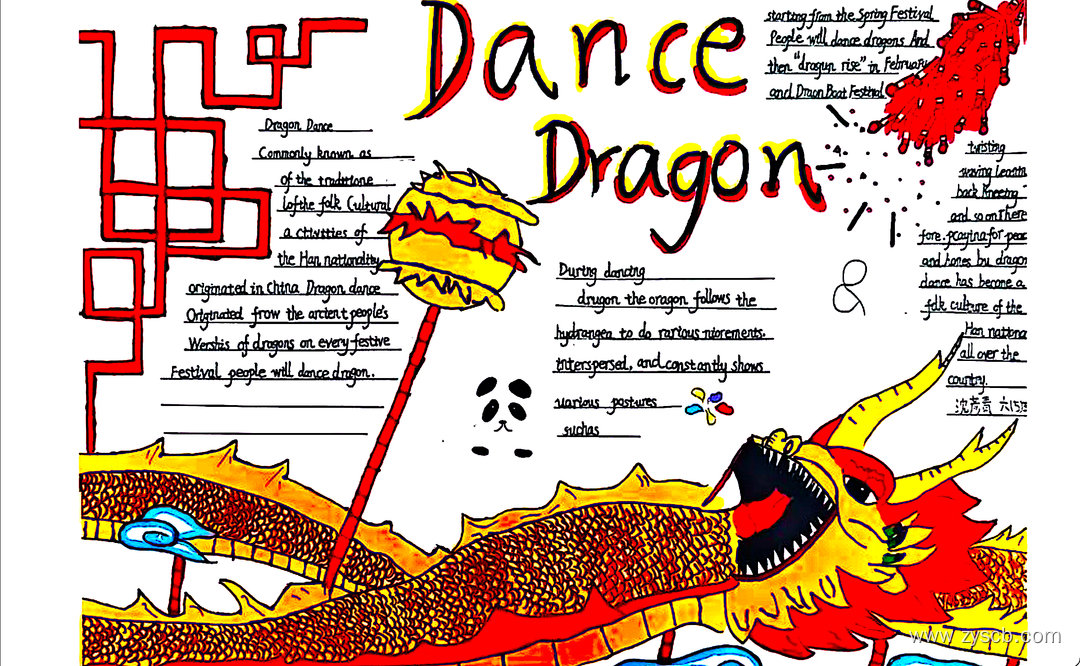 Dance
Dragon
starting from the Spring Festival
People will dance dragons And
then "dragun rise" in February
and Draon Boat Festival
Dragon Dance
Commonly known as
of the traditione
lofthe folk Cultural
a ctivities of
the Han nationality
originated in China Dragon dance
Originated frow the ancient people's
Wershis of dragons on every festive
Festival people will dance dragon.
During dancing
drugon the oragon follows the
hydrangea to do rarious niorements.
interspersed, and constantly shows
various postures
suchas
twisting
waving
back kneeing
and so on There
fore. praying for peac
and hones by dragon
dance has become a
folk culture of the
Han nationa
all over the
country.
沈彦青 六
www.zyscb.com